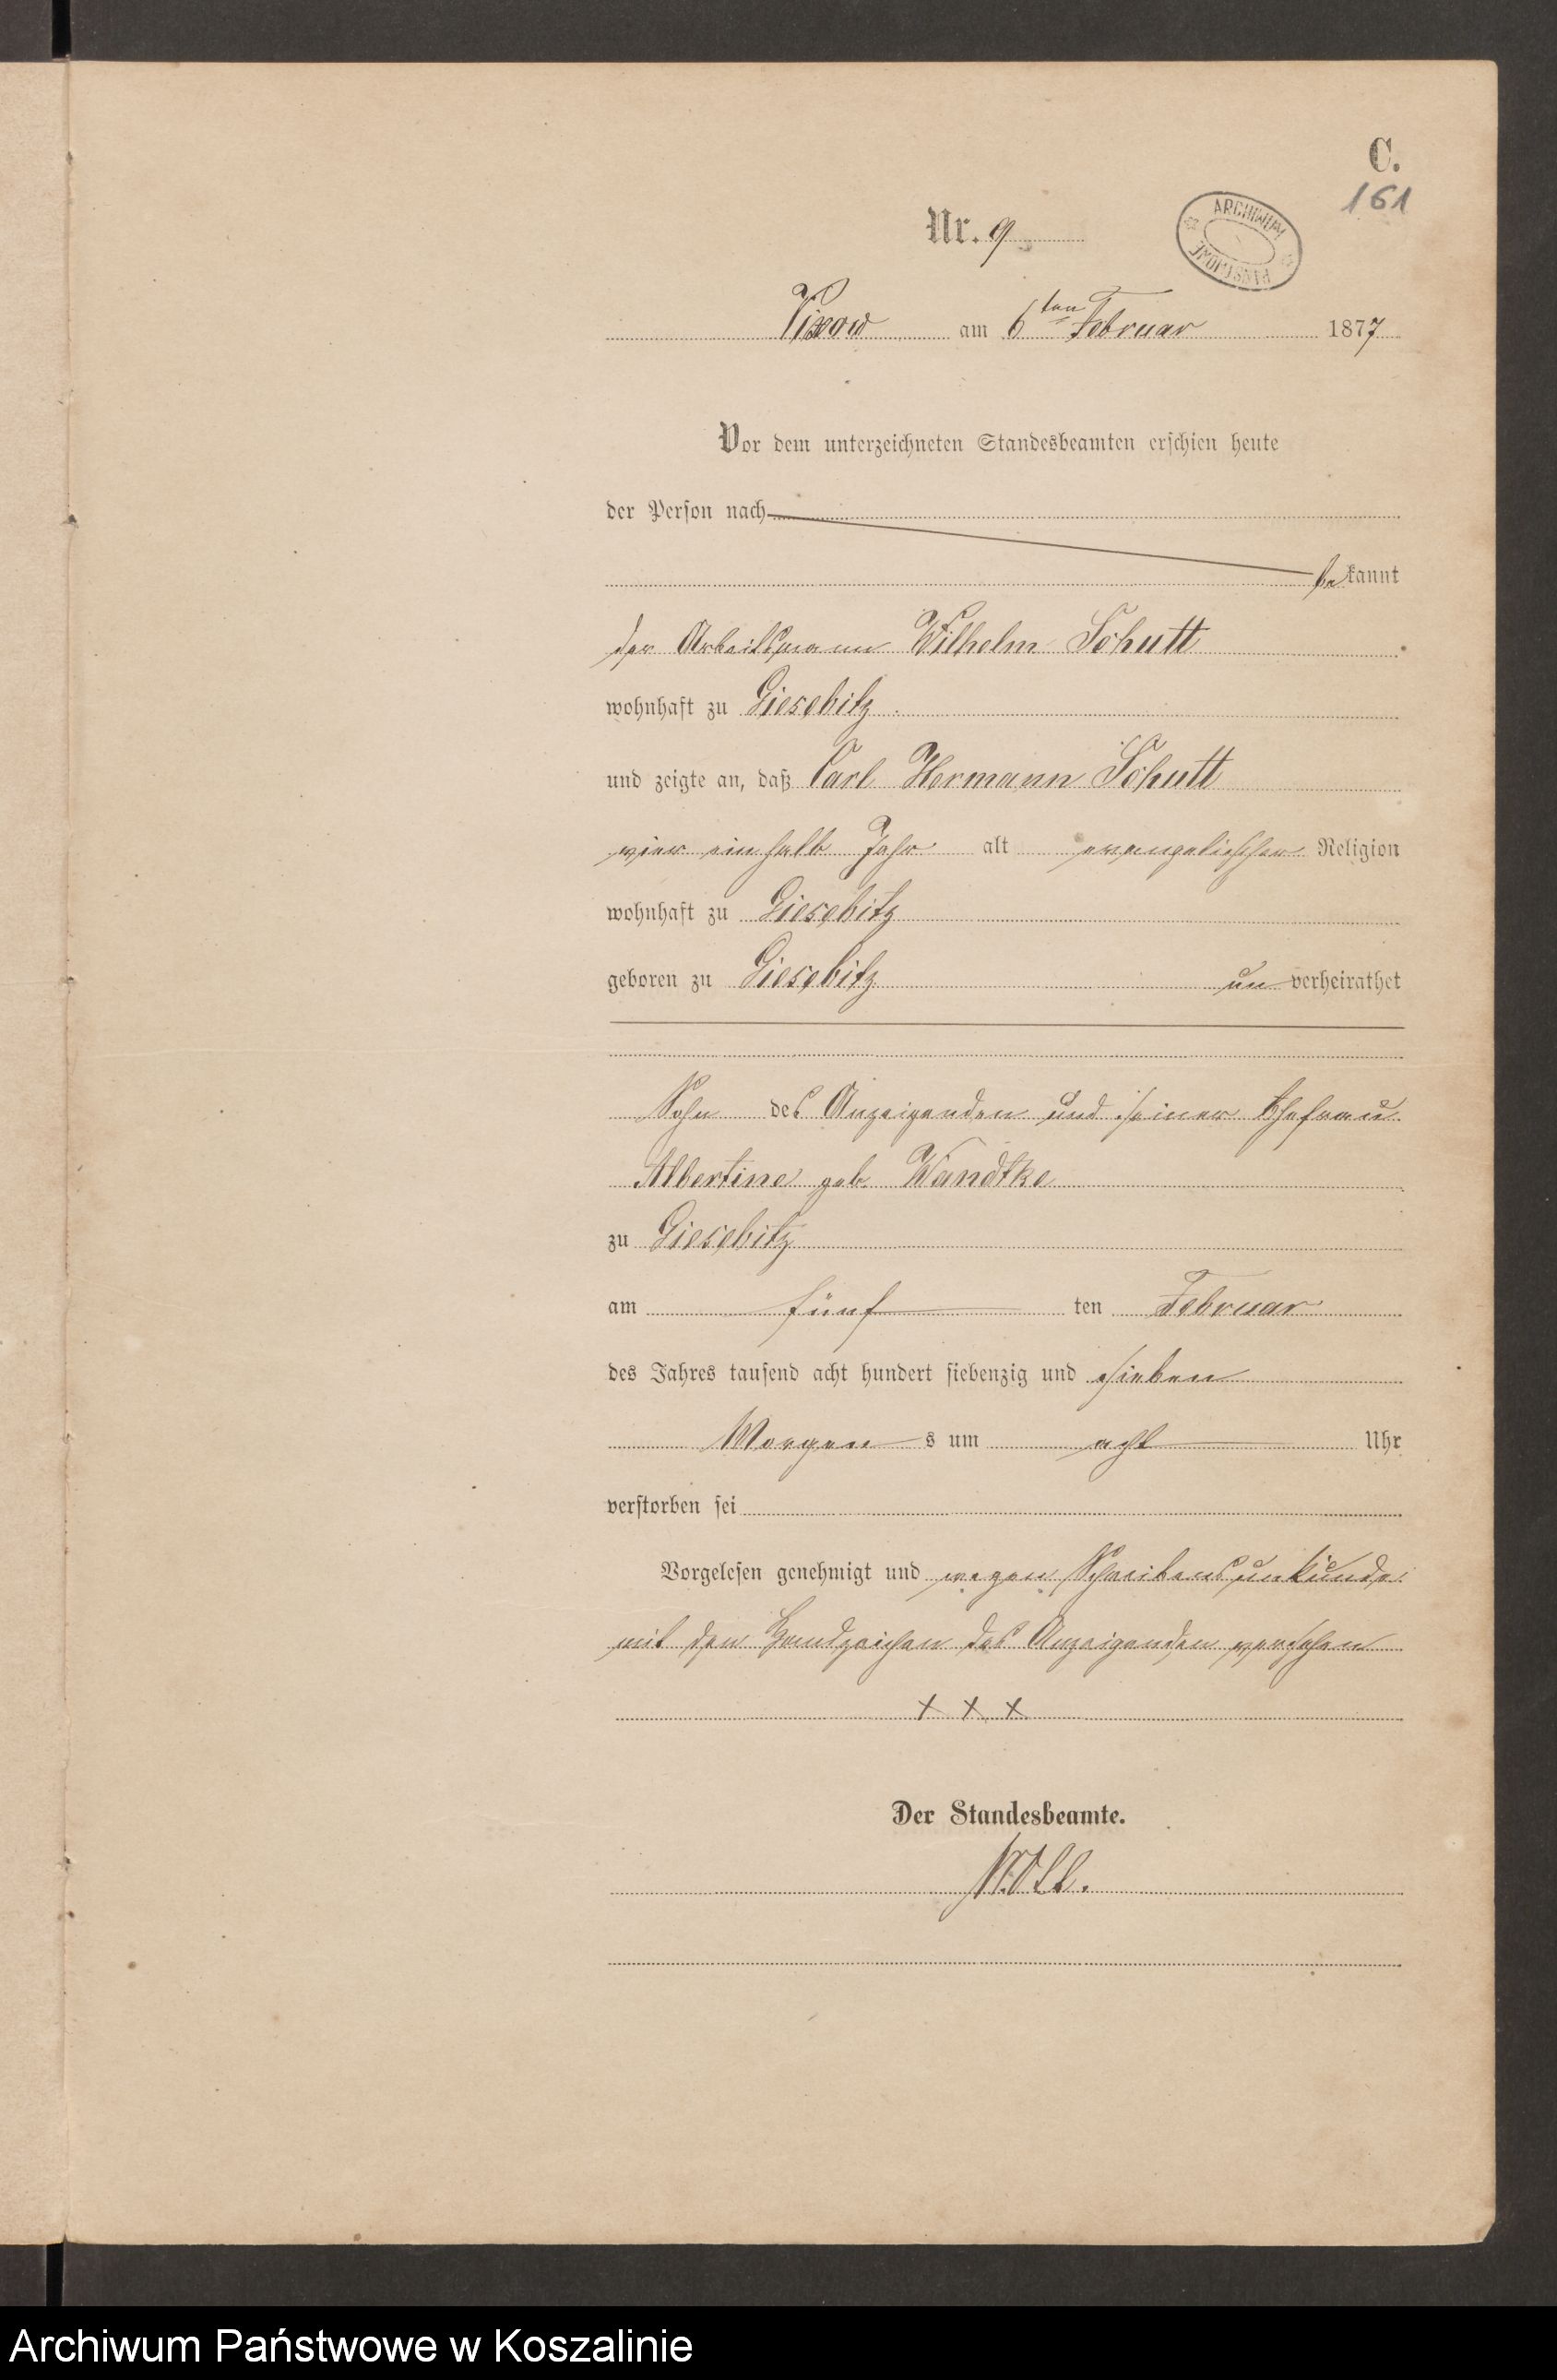 C.
161
Nr. 9
ARCHIWUM PAŃSTWOWE
Vixow am 6ten Februar 1877
Vor dem unterzeichneten Standesbeamten erschien heute
der Person nach
bekannt
der Arbeitsmann Wilhelm Schutt
wohnhaft zu Giesebitz
und zeigte an, daß Carl Hermann Schutt
vier einhalb Jahr alt evangelischer Religion
wohnhaft zu Giesebitz
geboren zu Giesebitz un verheirathet
Sohn des Anzeigenden und seiner Ehefrau
Albertine geb. Wandtke
zu Giesebitz
am fünf ten Februar
des Jahres tausend acht hundert siebenzig und sieben
Morgen s um acht Uhr
verstorben sei
Vorgelesen genehmigt und wegen Schreibensunkunde
mit den Handzeichen des Anzeigenden versehen
+ + +
Der Standesbeamte.
Archiwum Państwowe w Koszalinie